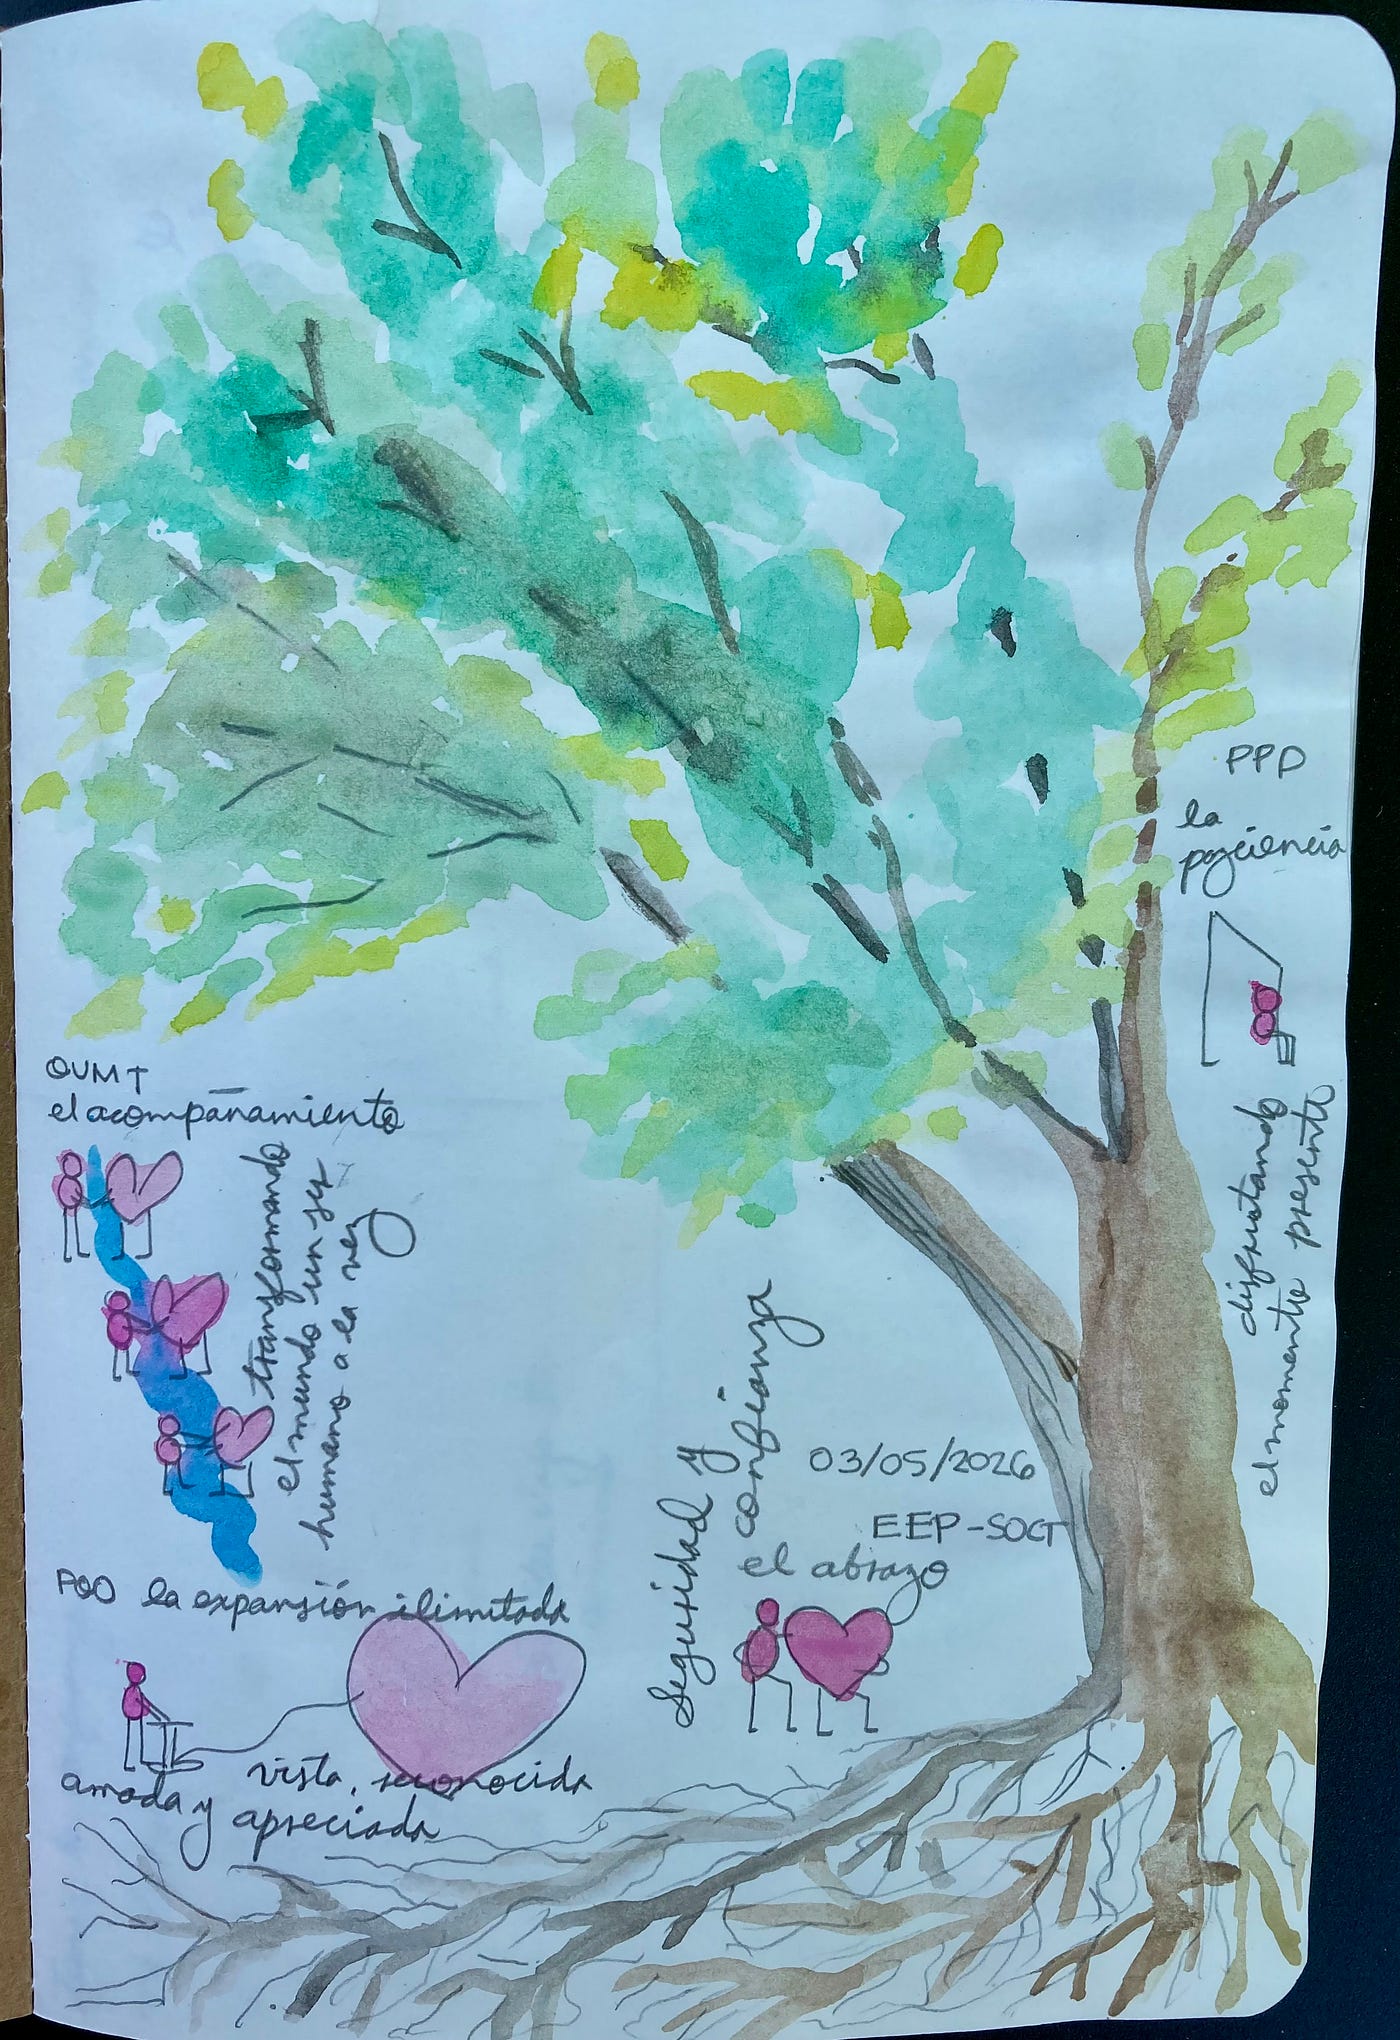 PPD
la
paciencia
disfrutando
el momento presente
OVMT
el acompañamiento
transformando
el mundo un ser
humano a la vez
Seguridad y
confianza
03/05/2026
EEP-SOCT
el abrazo
POO la expansión ilimitada
vista, reconocida
amada y apreciada